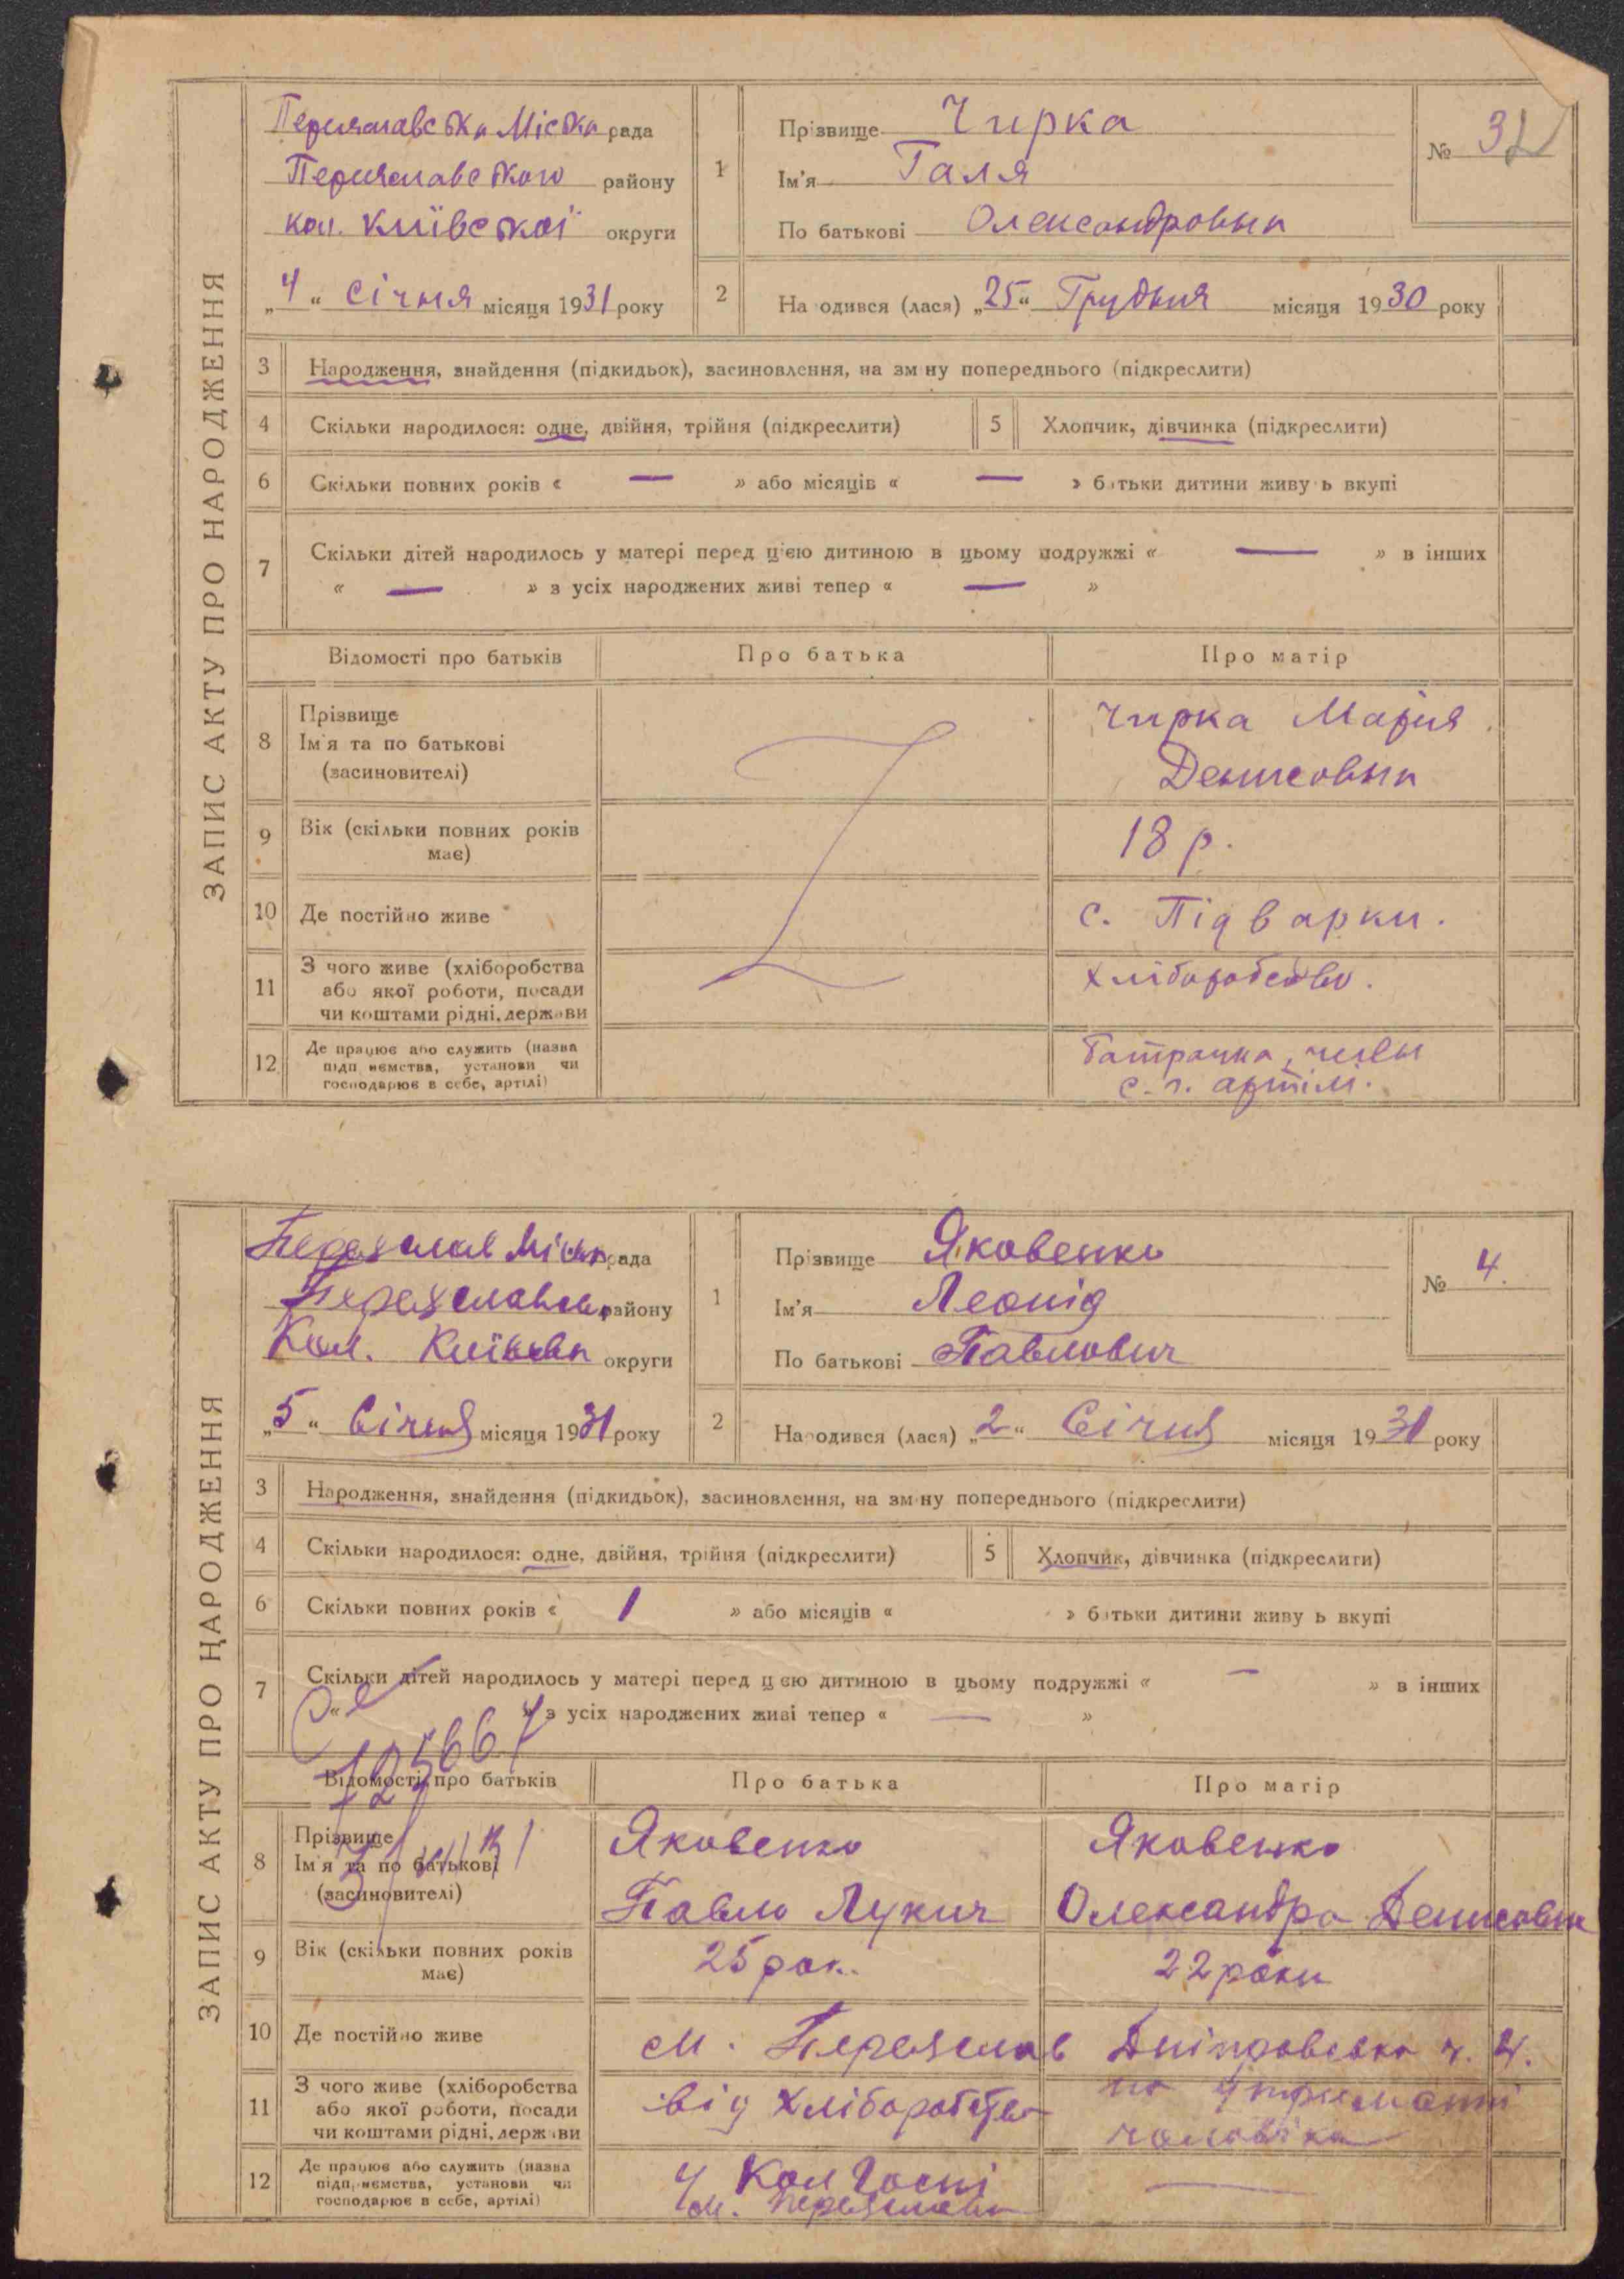 ЗАПИС АКТУ ПРО НАРОДЖЕННЯ
Переяславська Міська рада
Переяславського району
кол. Київської округи
„4“ Січня місяця 1931 року
1
Прізвище Чирка
Ім'я Галя
По батькові Олександровна
№ 3
2
На одився (лася) „25“ Грудня місяця 1930 року
3 Народження, знайдення (підкидьок), засиновлення, на зм ну попереднього (підкреслити)
4 Скільки народилося: одне, двійня, трійня (підкреслити)
5 Хлопчик, дівчинка (підкреслити)
6 Скільки повних років « — » або місяців « — » батьки дитини живу ь вкупі
7 Скільки дітей народилось у матері перед цією дитиною в цьому подружжі « — » в інших
« — » з усіх народжених живі тепер « — »
Відомості про батьків Про батька Про матір
8 Прізвище
Ім'я та по батькові
(засиновителі)
Чирка Марія
Денисовна
9 Вік (скільки повних років
має)
18 р.
10 Де постійно живе
с. Підварки.
11 З чого живе (хліборобства
або якої роботи, посади
чи коштами рідні, держави
хліборобство.
12 Де працює або служить (назва
підп иємства, установи чи
господарює в себе, артілі)
Батрачка, члены
с.-г. артілі.
ЗАПИС АКТУ ПРО НАРОДЖЕННЯ
Переяслав Міськ рада
Переяславськ району
Кол. Київськ округи
„5“ Січня місяця 1931 року
1
Прізвище Яковенко
Ім'я Леонід
По батькові Павлович
№ 4.
2
Народився (лася) „2“ Січня місяця 1931 року
3 Народження, знайдення (підкидьок), засиновлення, на зм ну попереднього (підкреслити)
4 Скільки народилося: одне, двійня, трійня (підкреслити)
5 Хлопчик, дівчинка (підкреслити)
6 Скільки повних років « 1 » або місяців « » батьки дитини живу ь вкупі
7 Скільки дітей народилось у матері перед цією дитиною в цьому подружжі « — » в інших
« » з усіх народжених живі тепер « — »
Відомості про батьків Про батька Про матір
8 Прізвище
Ім'я та по батькові
(засиновителі)
Яковенко
Павло Лукич
Яковенко
Олександра Денисовна
9 Вік (скільки повних років
має)
25 рок.
22 роки
10 Де постійно живе
м. Переяслав Дніпровська ч. 4.
11 З чого живе (хліборобства
або якої роботи, посади
чи коштами рідні, держави
від хліборобства
на утриманні
чоловіка
12 Де працює або служить (назва
підприємства, установи чи
господарює в себе, артілі)
У Колгоспі
м. Переяслава